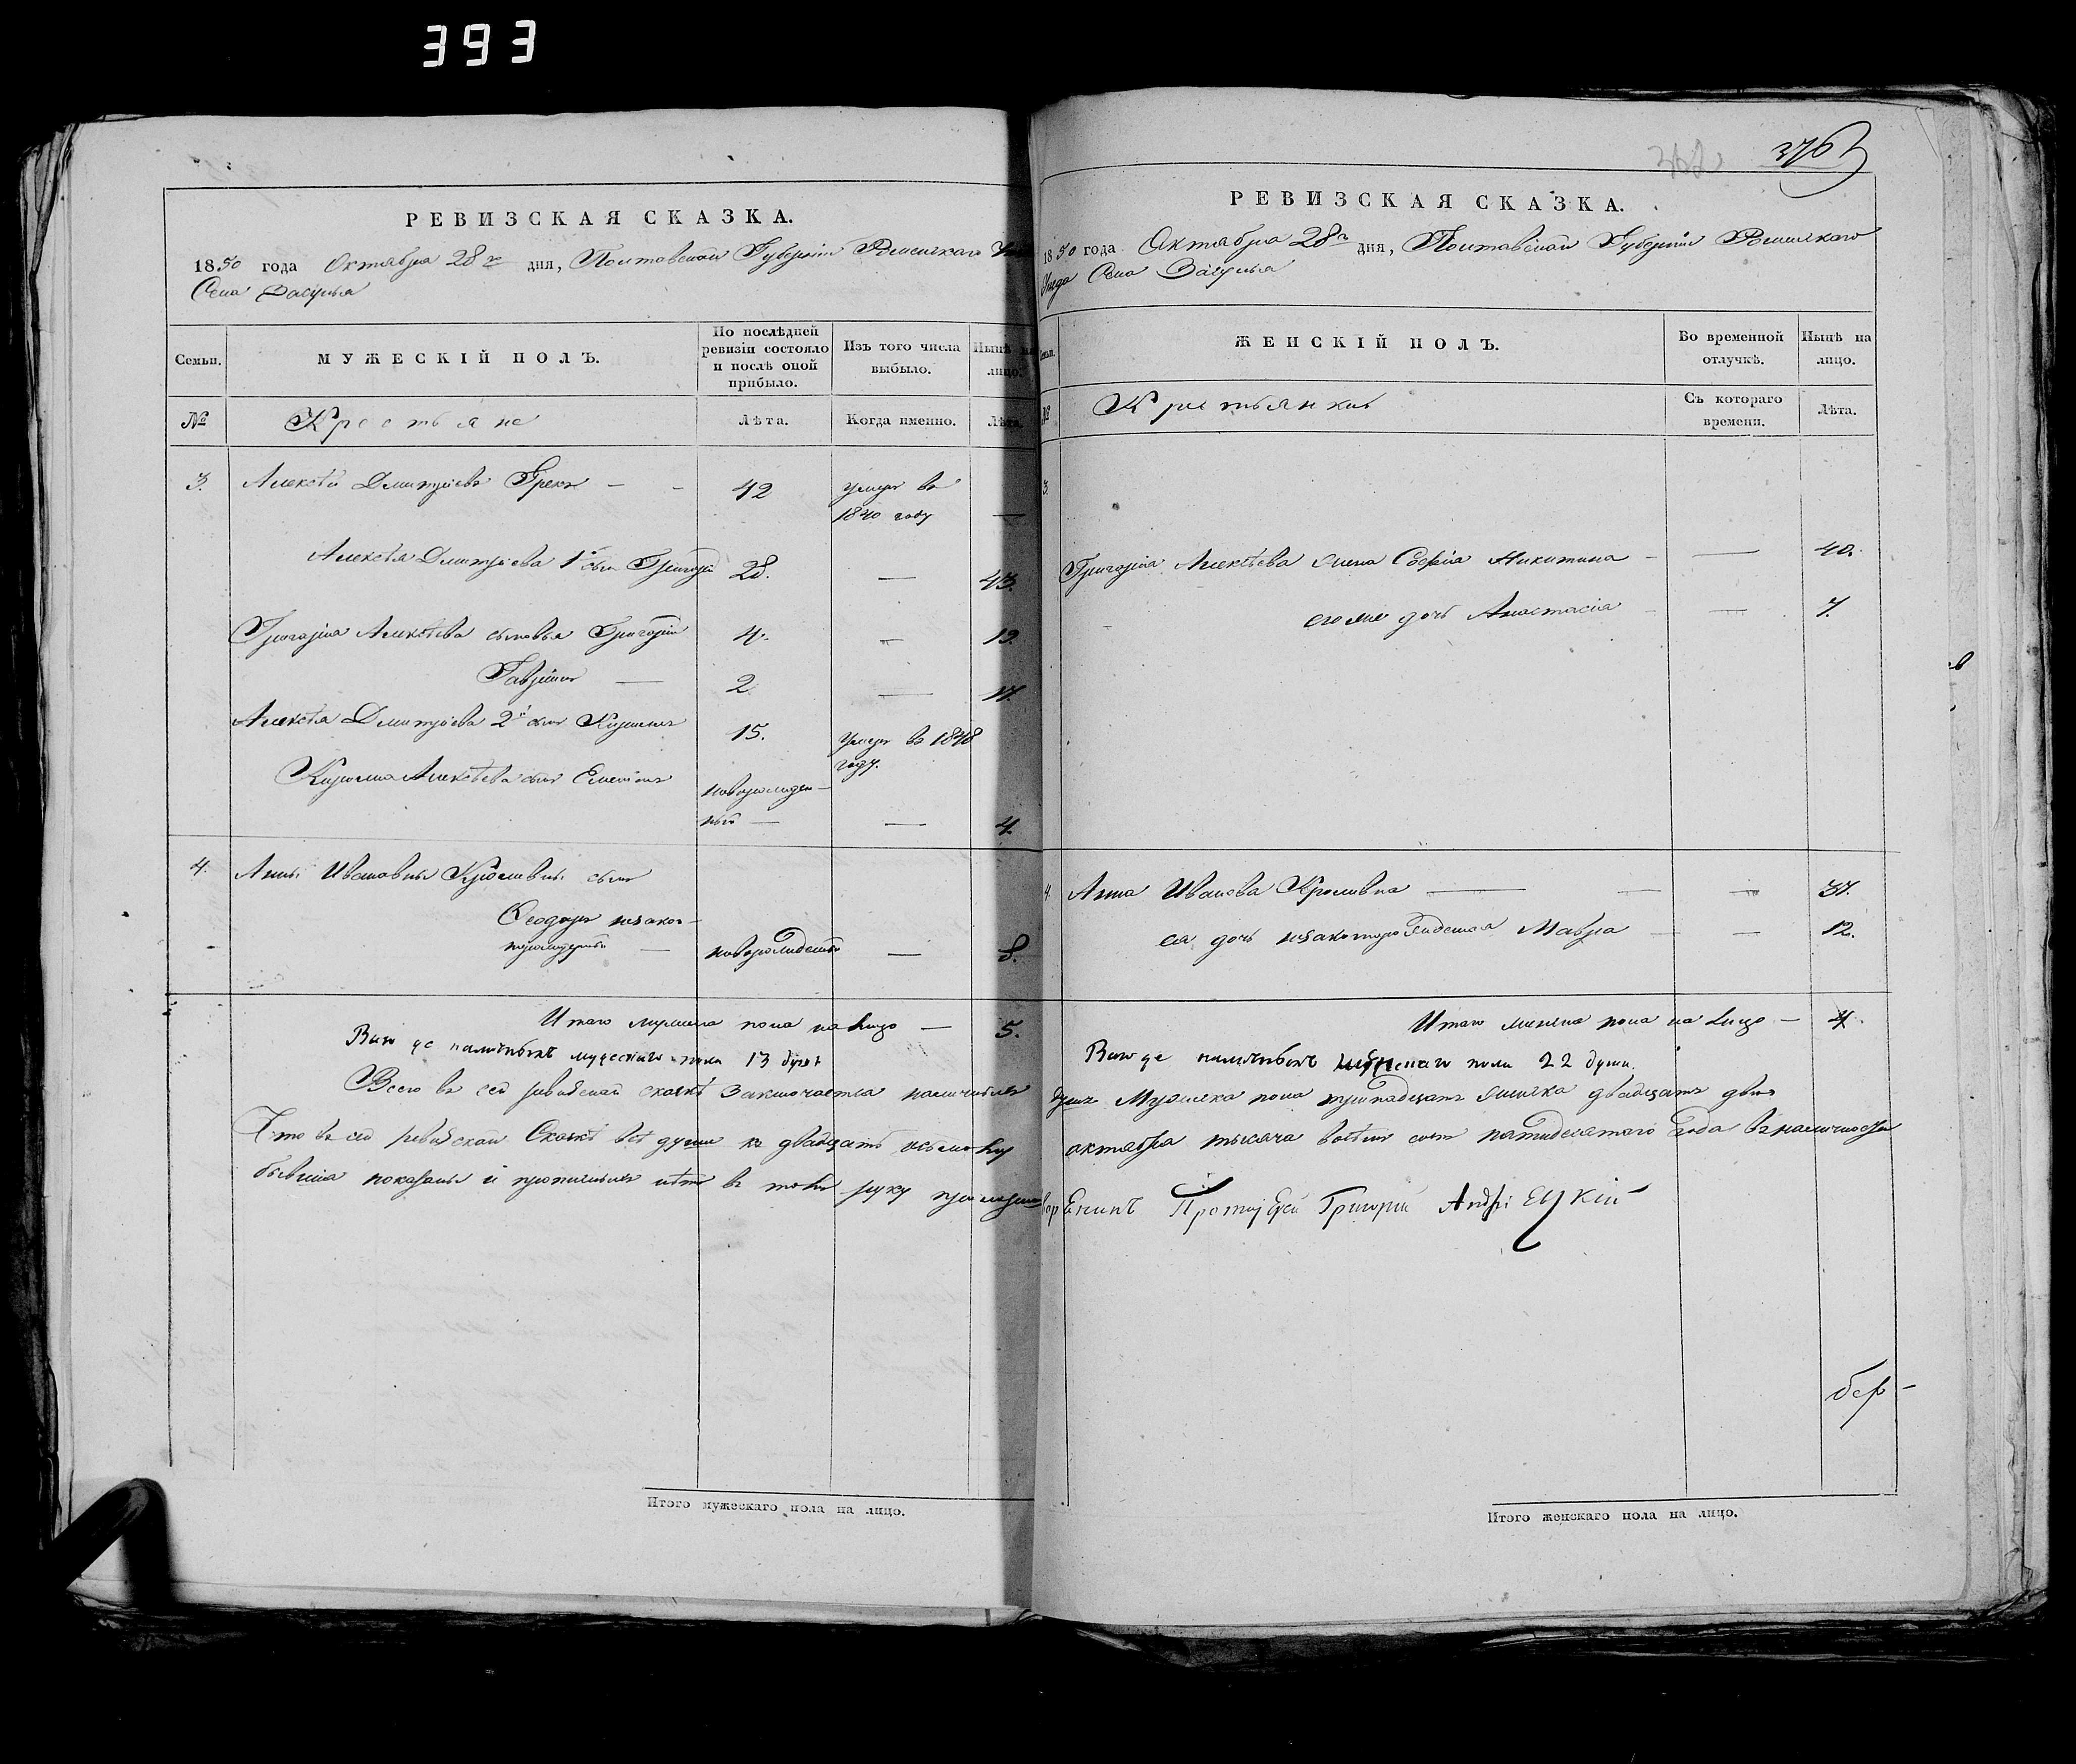 393
РЕВИЗСКАЯ СКАЗКА.
1850 года Октября 28го дня, Полтавской Губерніи Роменскаго
Села Засулья
Семьи.
МУЖЕСКІЙ ПОЛЪ.
По послѣдней ревизіи состояло и послѣ оной прибыло.
Изъ того числа выбыло.
Нынѣ на лицо.
№
Крестьяне
Лѣта.
Когда именно.
Лѣта.
3. Алексѣй Дмитріевъ Грекъ — — 42 умеръ въ
1840 году —
Алексѣя Дмитріева 1й сынъ Григорій 28. — 43.
Григорія Алексѣева сыновья Григорій 4. — 19.
Гавріилъ — 2 — 17.
Алексѣя Дмитріева 2й сынъ Кирилъ 15. Умеръ въ 1848
году.
Кирила Алексѣева сынъ новорожден-
ный — — 4.
4. Анны Ивановны сынъ
Ѳеодоръ незакон-
норожденный — новорожденный — 8.
Итого мужеска пола на лицо — 5.
Всего же наличныхъ мужескаго пола 13 душъ
Всего въ сей ревизской сказкѣ заключается наличныхъ
Что въ сей ревизской Сказкѣ всѣ души къ двадцать осьмому
бывшіе показаны и прописныхъ нѣтъ въ томъ руку
376
РЕВИЗСКАЯ СКАЗКА.
1850 года Октября 28го дня, Полтавской Губерніи Роменскаго
Уезда Села Засулья
Семьи.
ЖЕНСКІЙ ПОЛЪ.
Во временной отлучкѣ.
Нынѣ на лицо.
№
Крестьянки
Съ котораго времени.
Лѣта.
3.
Григорія Алексѣева жена Софія Никитина — — 40.
его же дочь Анастасія — — 7.
4. Анна Иванова — — — 37.
ея дочь незаконнорожденная Мавра — — 12.
Итого женска пола на лицо — 4.
Всего же наличныхъ женскаго пола 22 души.
душъ Мужеска пола тринадцать женска двадцать двѣ
октября тысяча восемь сотъ пятидесятого года въ наличности
Протоіерей Григорій Андріецкій
Итого мужескаго пола на лицо.
Итого женскаго пола на лицо.